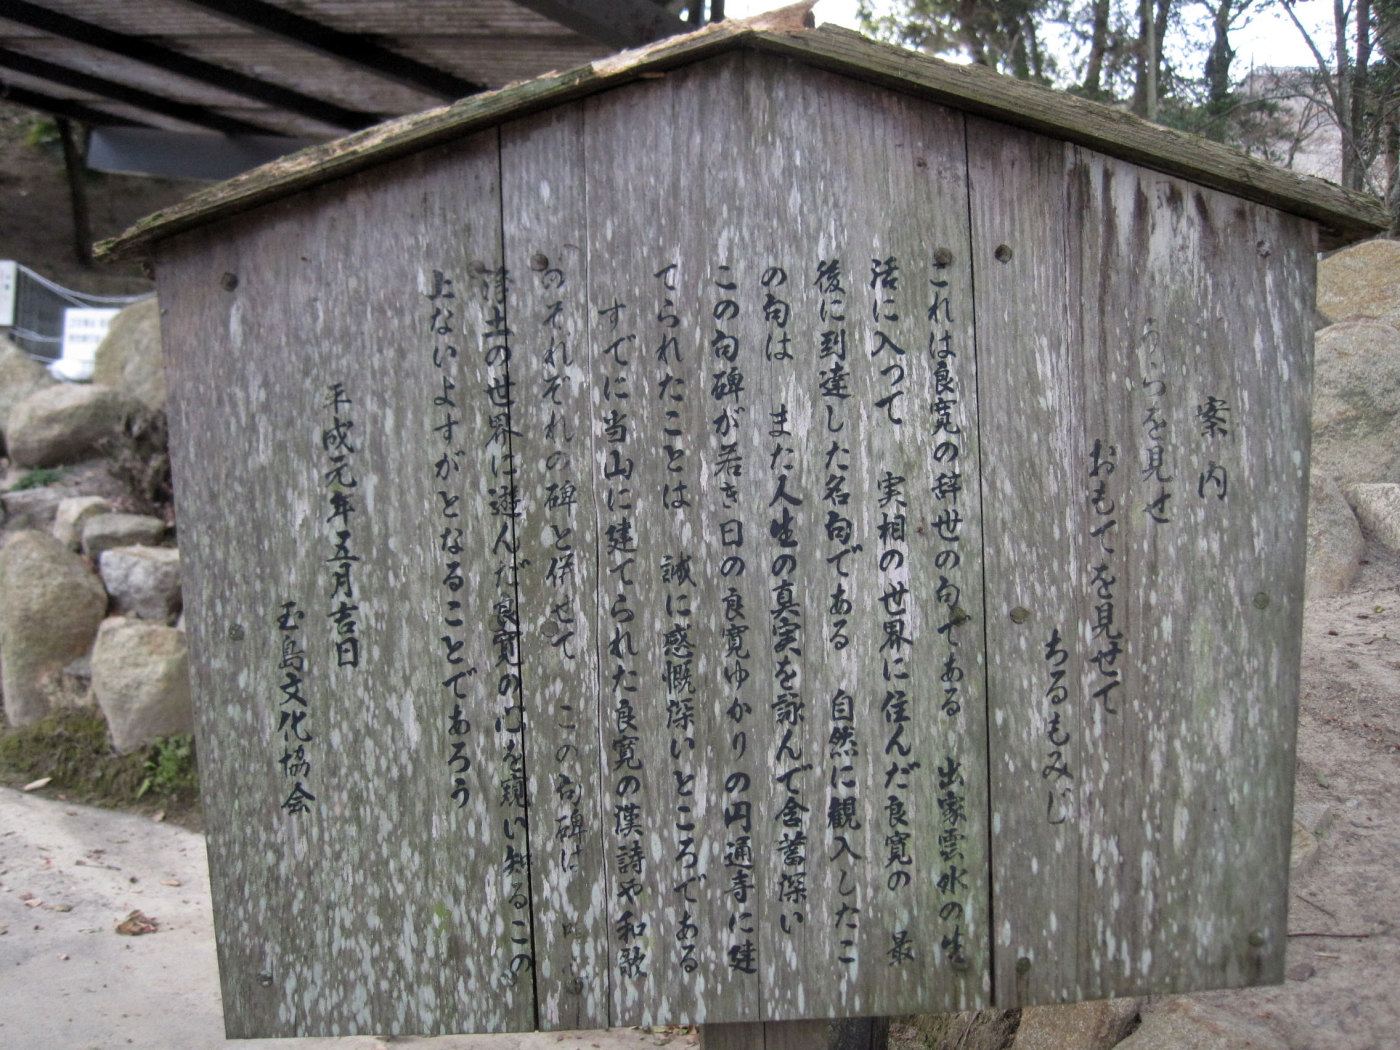 案内
うらを見せ
おもてを見せて
ちるもみじ
これは良寛の辞世の句である　出家雲水の生
活に入って　実相の世界に住んだ良寛の　最
後に到達した名句である　自然に観入したこ
の句は　また人生の真実を詠んで含蓄深い
この句碑が若き日の良寛ゆかりの円通寺に建
てられたことは　誠に感慨深いところである
すでに当山に建てられた良寛の漢詩や和歌
のそれぞれの碑と併せて　この句碑は
浄土の世界に遊んだ良寛の心を窺い知るこの
上ないよすがとなることであろう
平成元年五月吉日
玉島文化協会